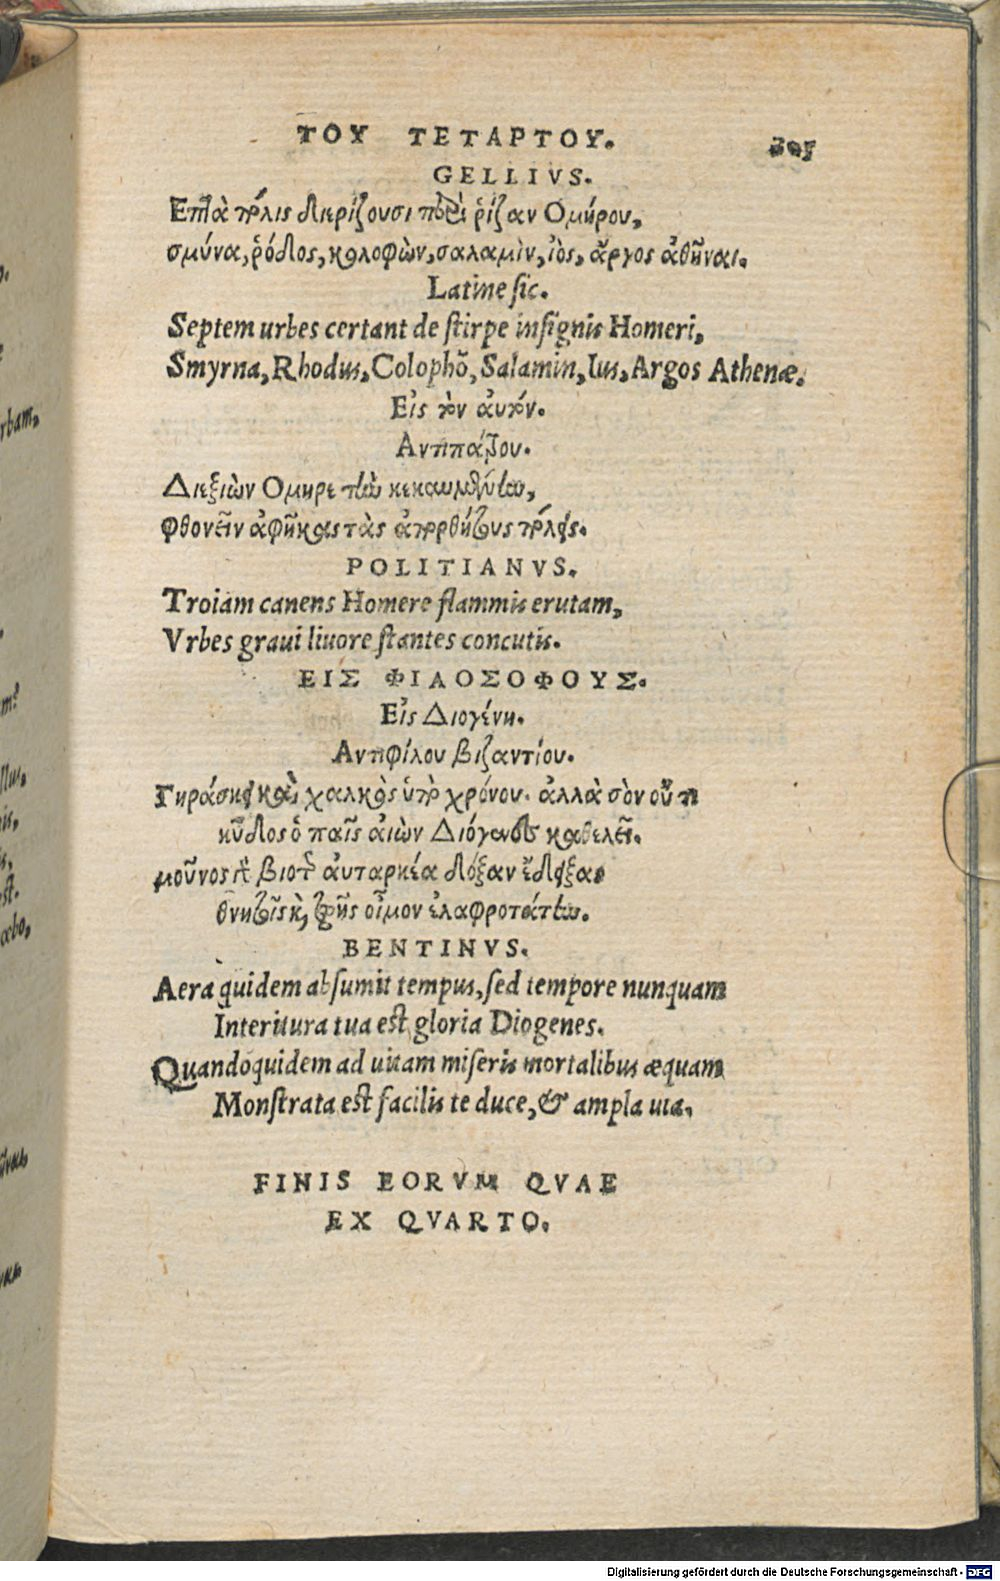 ΤΟΥ ΤΕΤΑΡΤΟΥ. 305
GELLIVS.
Επτὰ πόλεις διερίζουσι περὶ ῥίζαν Ομήρου,
σμύνα, ῥόδος, κολοφὼν, σαλαμὶν, ἴος, ἄργος ἀθῆναι.
Latine sic.
Septem urbes certant de stirpe insignis Homeri,
Smyrna, Rhodus, Colophō, Salamin, Ius, Argos Athenæ.
Εἰς τὸν αὐτόν.
Αντιπάτρου.
Διεξιὼν Ομηρε τὴν κεκαυμένην,
φθονεῖν ἀφῆκας τὰς ἀπορθήτους πόλεις.
POLITIANVS.
Troiam canens Homere flammis erutam,
Vrbes graui liuore stantes concutis.
ΕΙΣ ΦΙΛΟΣΟΦΟΥΣ.
Εἰς Διογένη.
Αντιφίλου βιζαντίου.
Γηράσκει καὶ χαλκὸς ὑπὸ χρόνου. ἀλλὰ σὸν οὔ τι
κῦδος ὁ παῖς αἰὼν Διόγενες καθελεῖ.
μοῦνος ἐπεὶ βιοτῆς αὐταρκέα δόξαν ἔδειξας
θνητοῖς καὶ ζωῆς οἶμον ἐλαφροτάτην.
BENTINVS.
Aera quidem absumit tempus, sed tempore nunquam
Interitura tua est gloria Diogenes.
Quandoquidem ad uitam miseris mortalibus æquam
Monstrata est facilis te duce, & ampla uia.
FINIS EORVM QVAE
EX QVARTO.
Digitalisierung gefördert durch die Deutsche Forschungsgemeinschaft - DFG